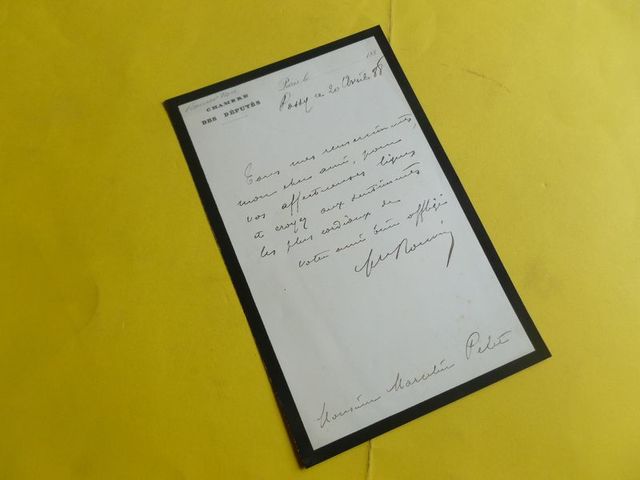 CHAMBRE
DES DÉPUTÉS
Paris le 188
Passy ce 20 Avril 88
Tous mes remerciements,
mon cher ami, pour
vos affectueuses lignes
et croyez aux sentiments
les plus cordiaux de
votre ami bien affligé
Monsieur Marcelin Pellet